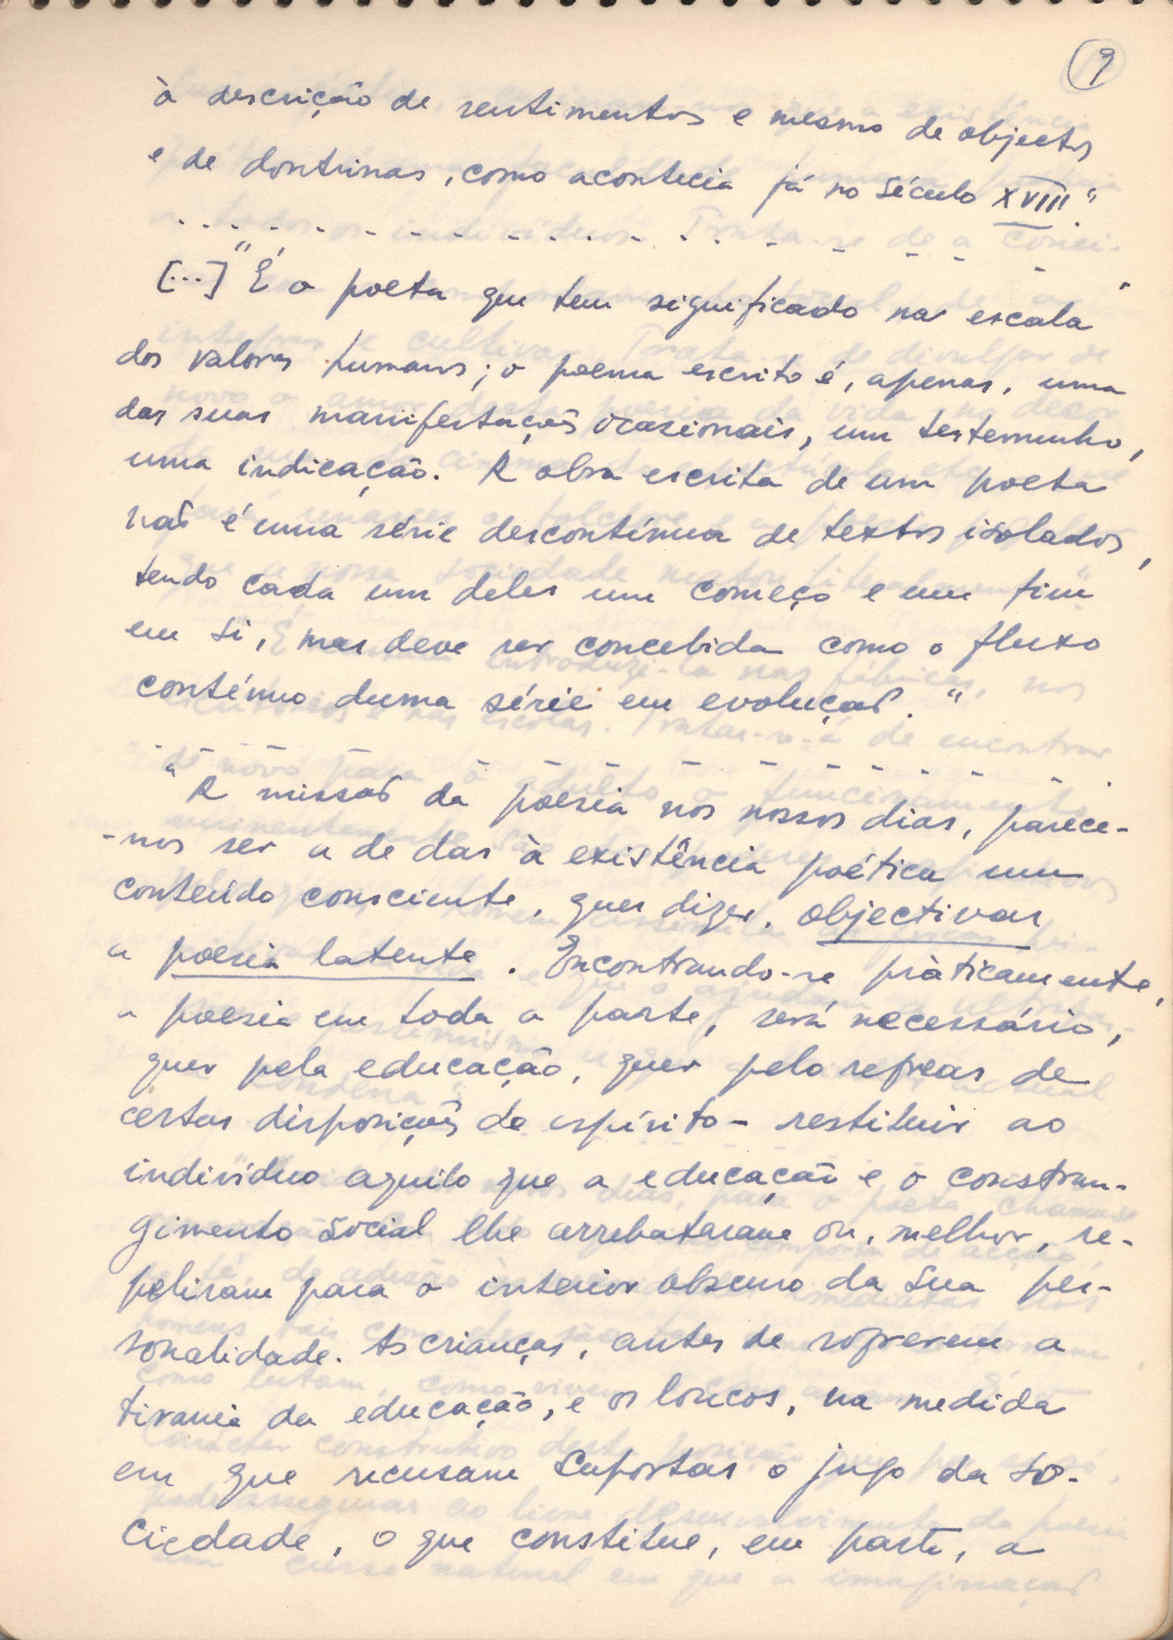 9
à descrição de sentimentos e mesmo de objectos
e de doutrinas, como acontecia já no século XVIII."
. . . . . . . - - - - - - - - -
[...] "É o poeta que tem significado na escala
dos valores humanos; o poema escrito é, apenas, uma
das suas manifestações ocasionais, um testemunho,
uma indicação. A obra escrita de um poeta
não é uma série descontínua de textos isolados,
tendo cada um deles um começo e um fim
em si, mas deve ser concebida como o fluxo
contínuo duma série em evolução."
- - - - - - - - - - - - -
"A missão da poesia nos nossos dias, parece-
-nos ser a de dar à existência poética um
conteúdo consciente, quer dizer, objectivar
a poesia latente. Encontrando-se pràticamente,
a poesia em toda a parte, será necessário,
quer pela educação, quer pelo refrear de
certas disposições de espírito - restituir ao
indivíduo aquilo que a educação e o constran-
gimento social lhe arrebataram ou, melhor, re-
peliram para o interior obscuro da sua per-
sonalidade. As crianças, antes de sofrerem a
tirania da educação, e os loucos, na medida
em que recusam suportar o jugo da so-
ciedade, o que constitue, em parte, a